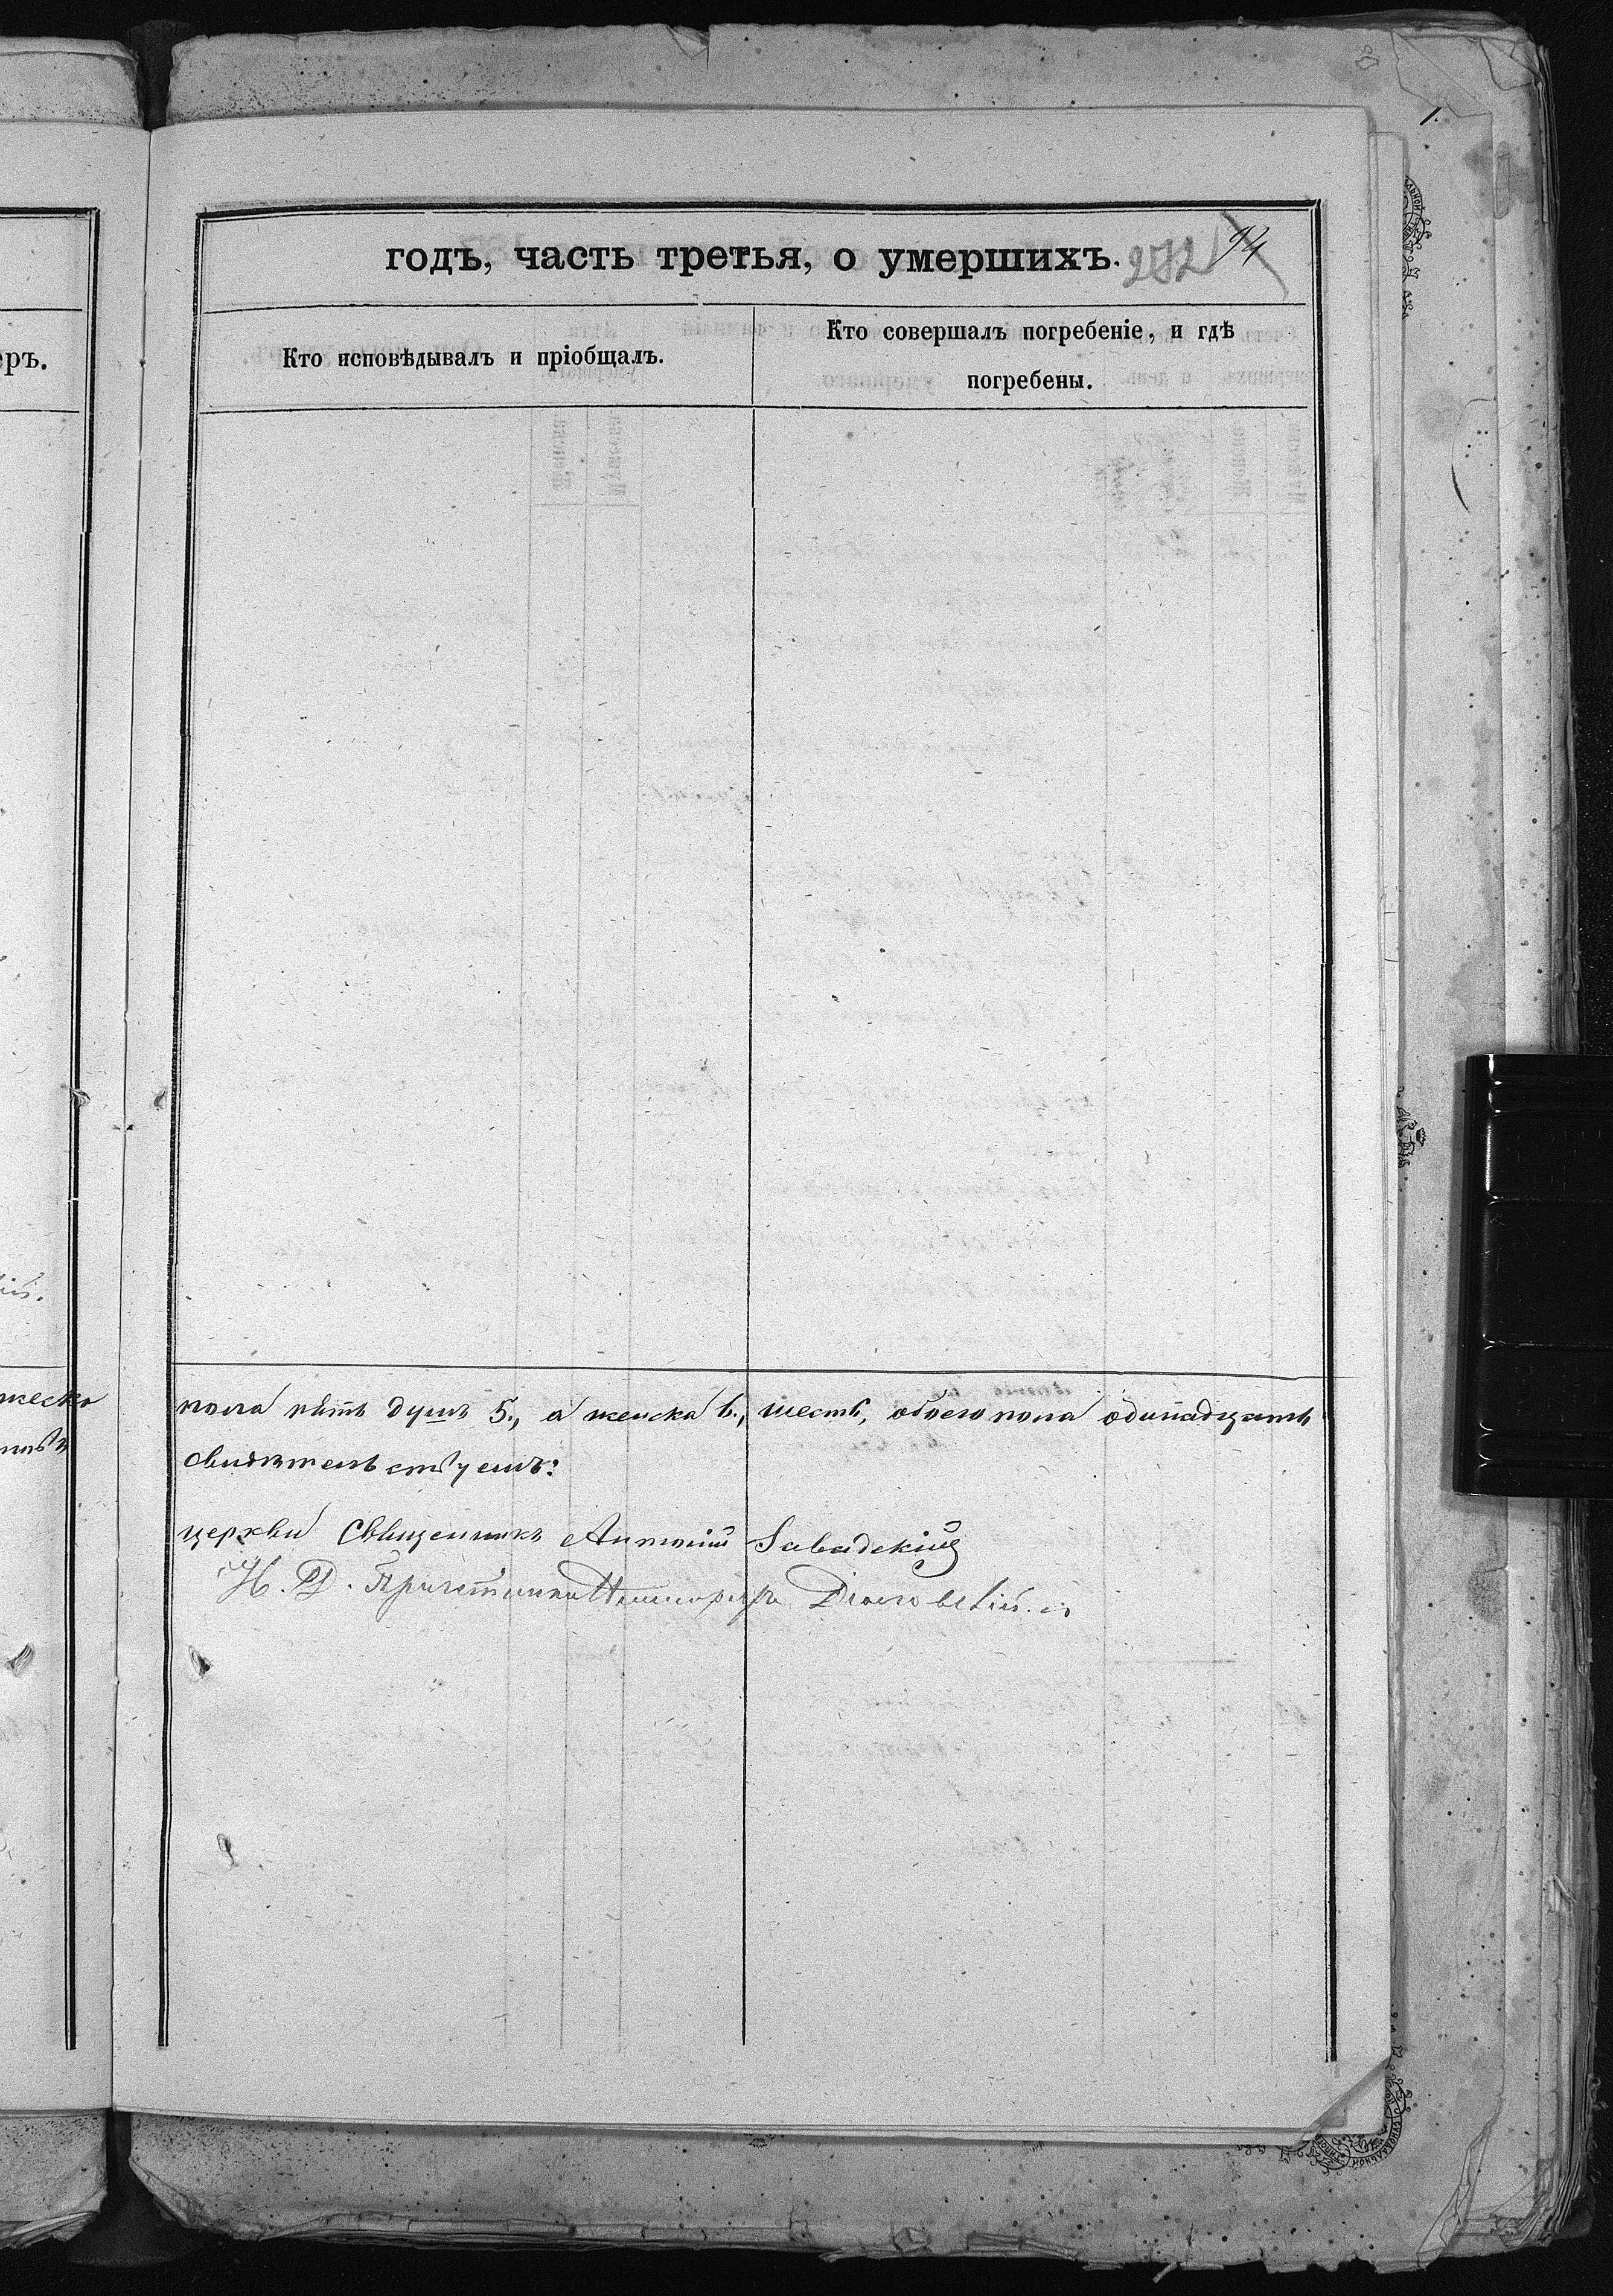 годъ, часть третья, о умершихъ.
272 94
Кто исповѣдывалъ и пріобщалъ.
Кто совершалъ погребеніе, и гдѣ
погребены.
пола пять душъ 5., а женска 6., шесть, обоего пола одинадцать
свидѣтельствуемъ:
церкви Священникъ Антоній Завадскій
И. Д. Причетника
еръ.
жеско